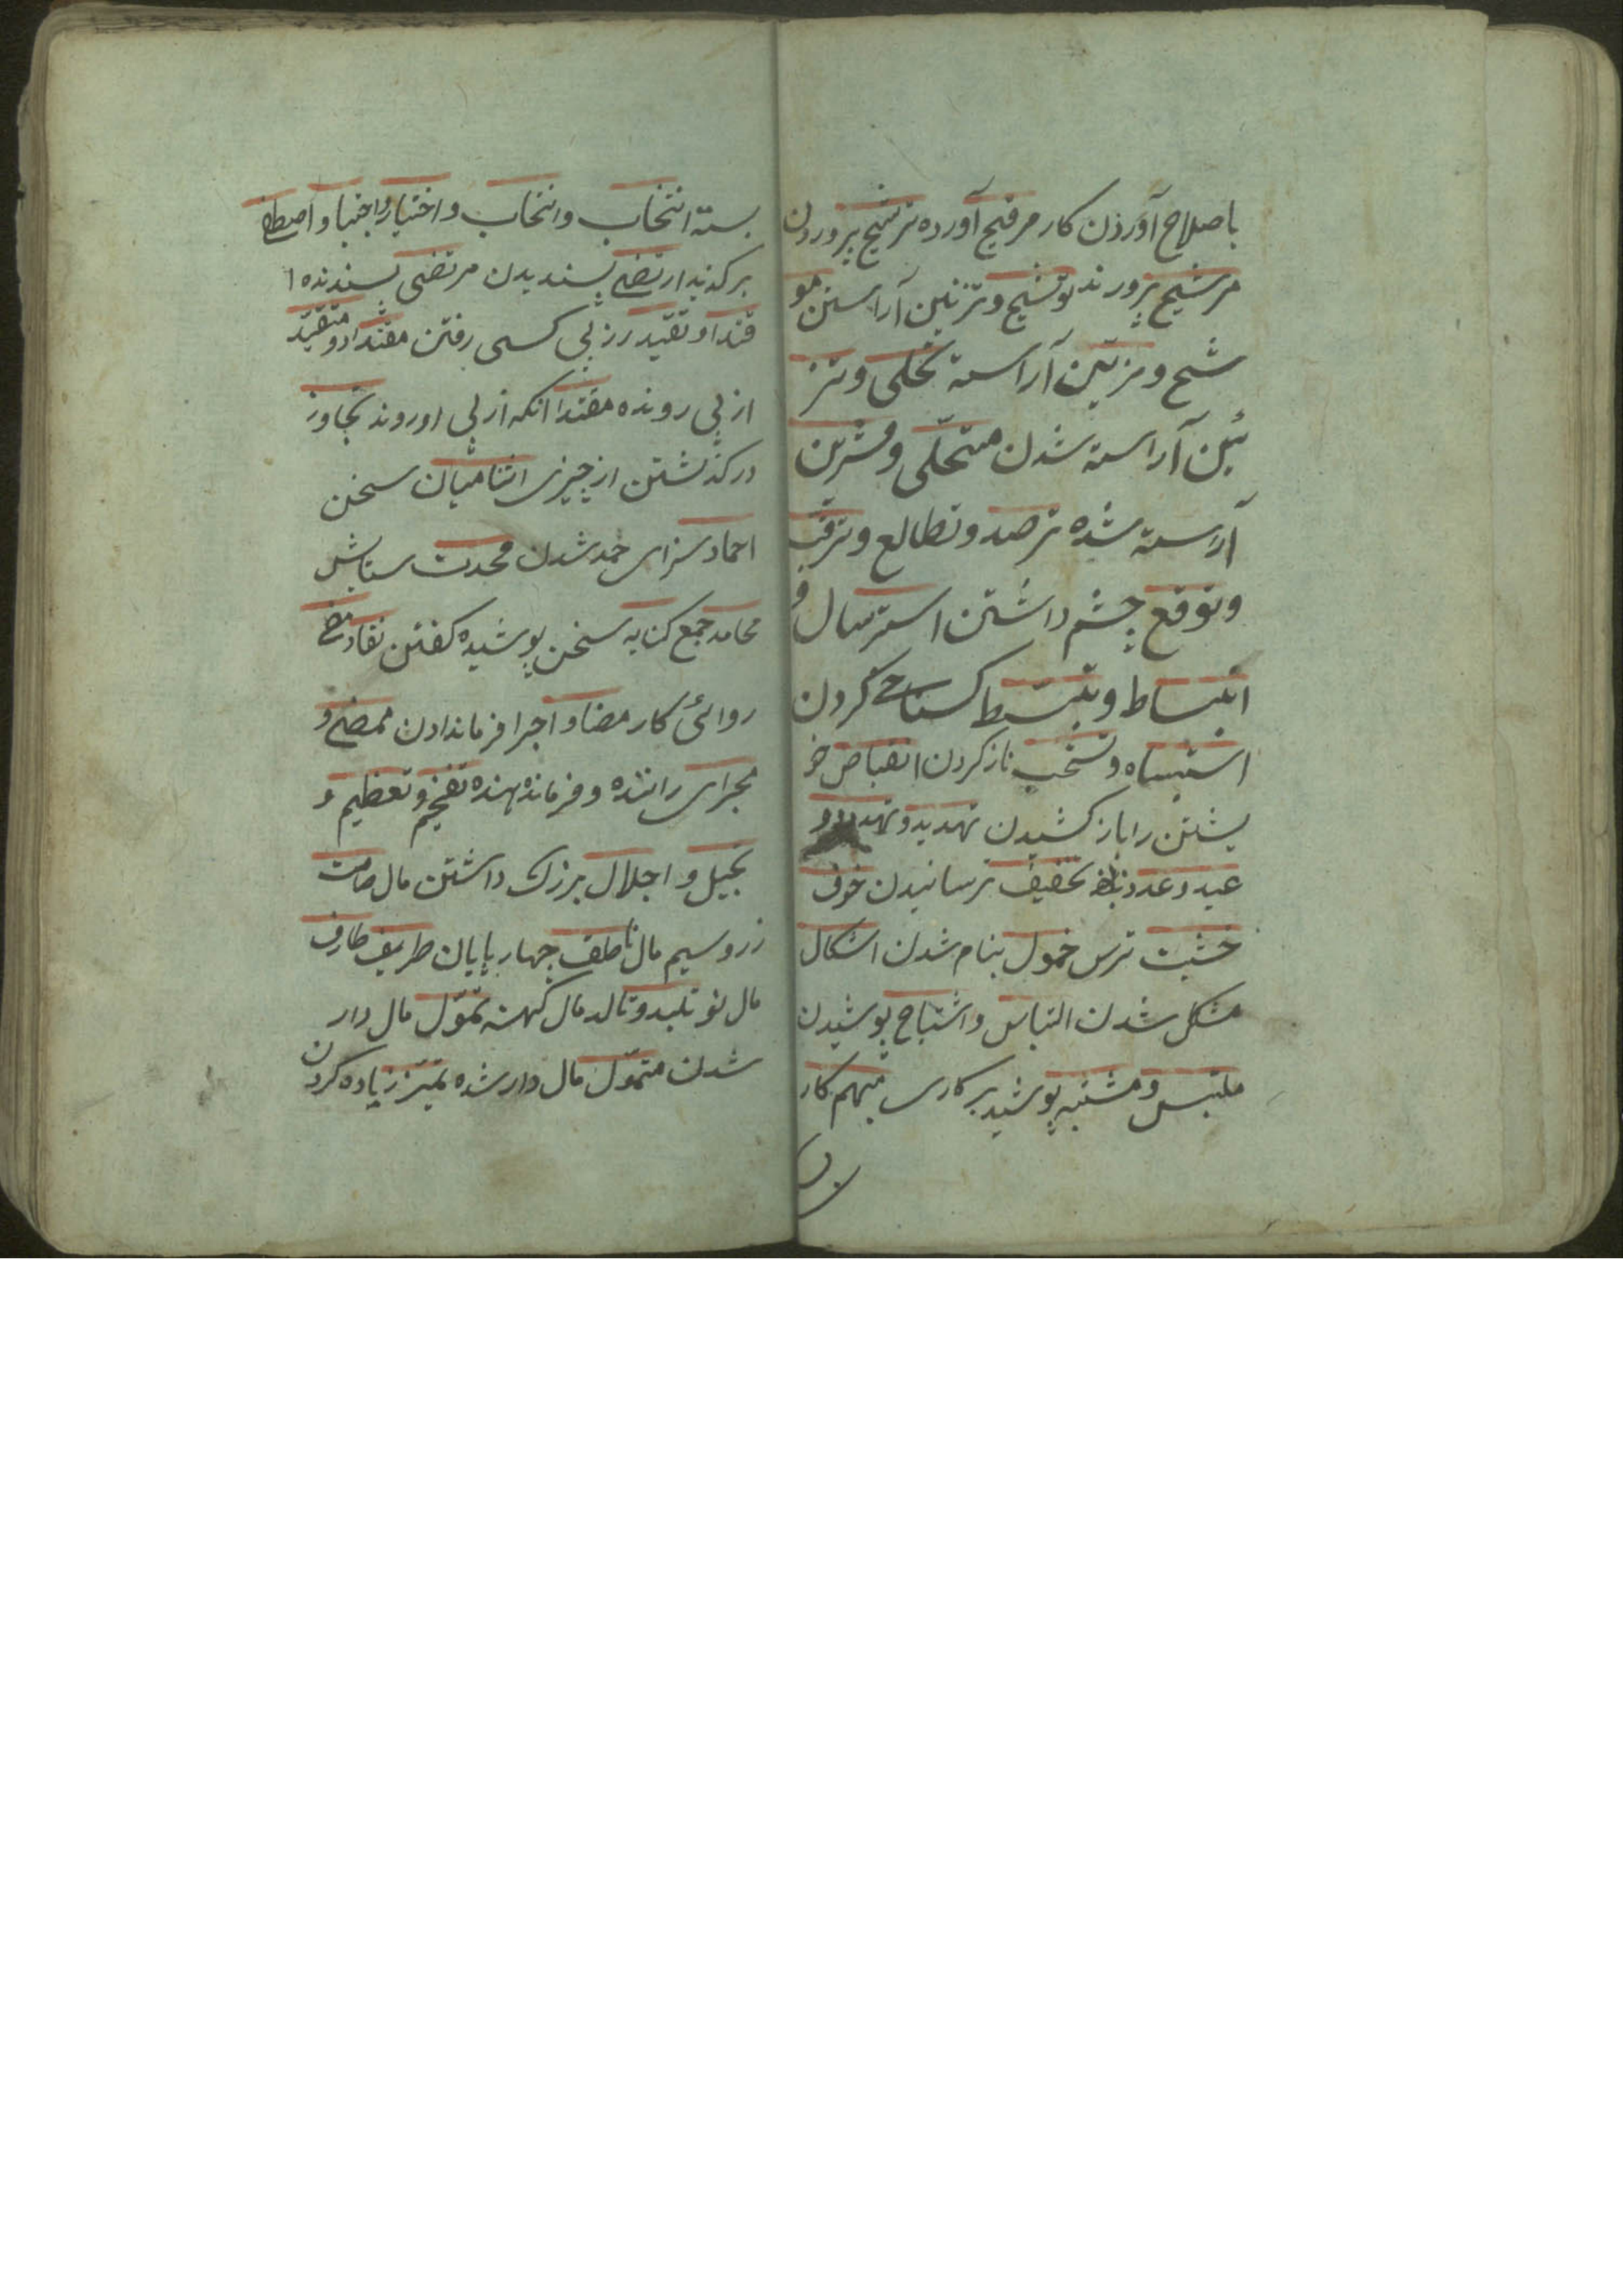 باصلاح آوردن کار مرقیح آورده ترشیح پروردن
مرشیح پرورند توشیح و تزئین آراستن مو
شح و مزیّن آراسته تحلی و تز
ئین آراسته شدن متحلّی و مزین
آراسته شده ترصد و تطالع و ترقب
و توقع چشم داشتن استرسال و
انبساط و تبسّط کستاخی کردن
اشتباه و تسخب ناز کردن انقباض خو
یشتن را باز کشیدن تهدید و تهدد و و
عید و عدد تخفیف ترسانیدن خوف
خشیت ترس خمول بنام شدن اشکال
مشکل شدن التباس و اشتباح پوشیدن
ملتبس و مشتبه پوشید بر کاری مبهم کار
بسته انتخاب وانتخاب و اختیار و اجتبا و اصطفی
برکزید ارتضی پسندیدن مرتضی پسندنده ا
قتدا و تقیّد از پی کسی رفتن مقتدا و متقیّد
از پی رونده مقتدا انکه از پی او روند تجاوز
درکذشتن از چیزی اثنا میان سخن
احماد سزای حمد شدن محمدت ستایش
محامد جمع کنایه سخن پوشیده کفتن نفاد مض
روائی کار مضا و اجرا فرماندادن ممضی و
مجرای راننده و فرماندهنده تفخیم و تعظیم و
تبجیل و اجلال بزرک داشتن مال صامت
زر و سیم مال ناطق چهار پایان طریف طارف
مال نو تلید و تالد مال کهنه تموّل مال دار
شدن متموّل مال دار شده تمیّز زیاده کردن